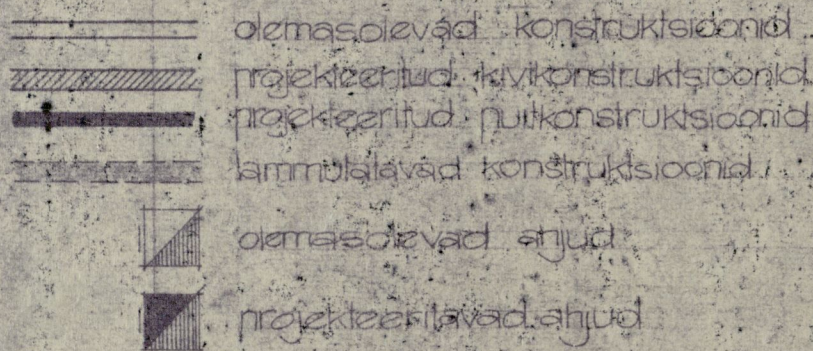 olemasolevad konstruktsioonid
projekteeritud kivikonstruktsioonid
projekteeritud puitkonstruktsioonid
lammutatavad konstruktsioonid
olemasolevad ahjud
projekteeritavad ahjud